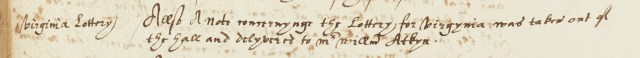 Virginia Lottery
Allso A note concernynge the Lottery for Virgynia was taken out of
the hall and delyvered to mr willm Atkyn.